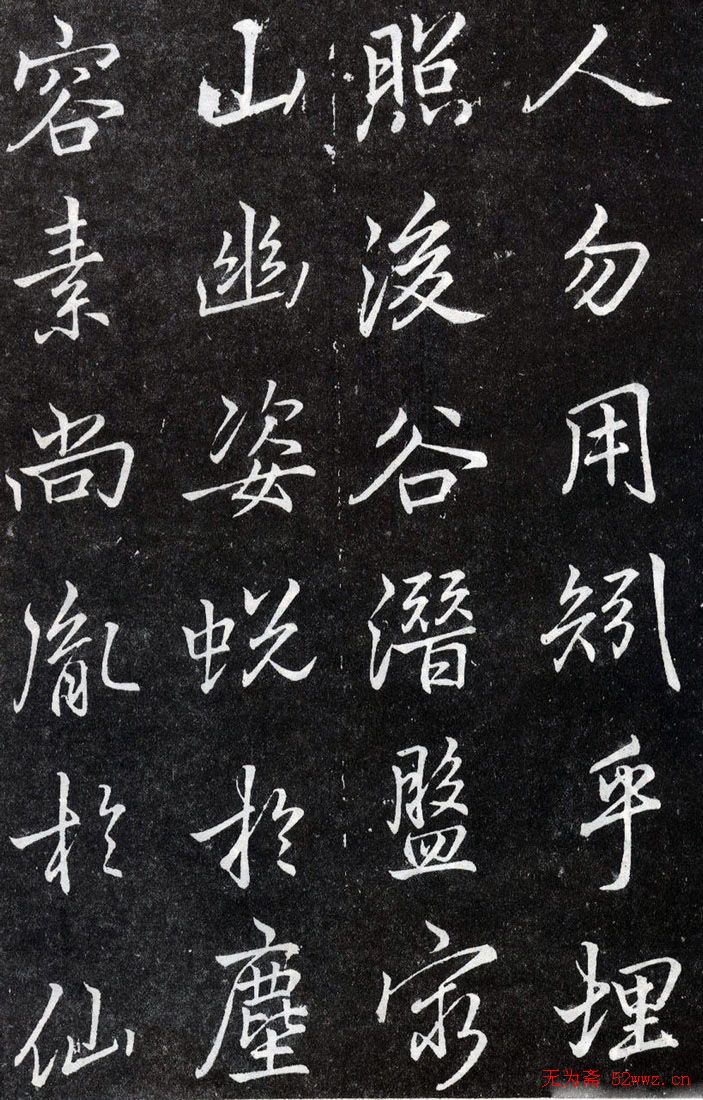 人勿用矧乎埋
照浚谷潛盤
山幽姿蛻於塵
容素尚胤於仙
无为斋 52wwz.cn